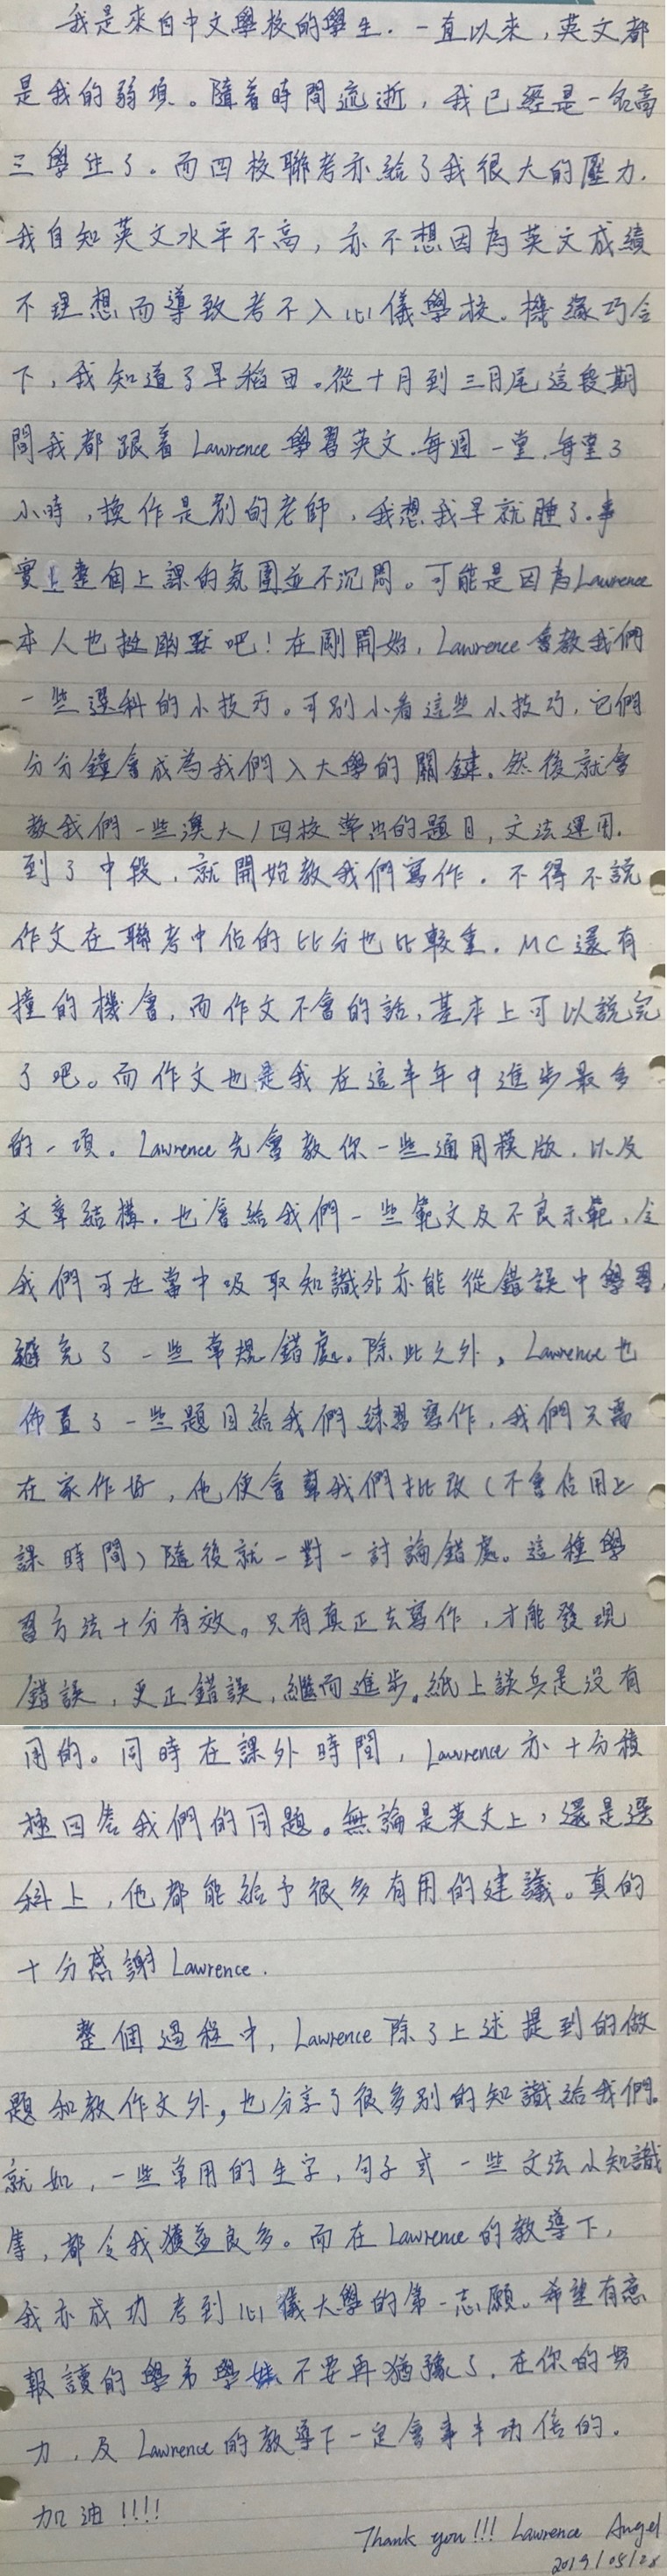 我是來自中文學校的學生. 一直以來, 英文都
是我的弱項。隨着時間流逝, 我已經是一名高
三學生了。而四校聯考亦給了我很大的壓力.
我自知英文水平不高, 亦不想因為英文成績
不理想而導致考不入心儀學校。機緣巧合
下, 我知道了早稻田。從十月到三月尾這段期
間我都跟着 Lawrence 學習英文. 每週一堂. 每堂3
小時, 換作是別的老師, 我想我早就睡了. 事
實上整個上課的氛圍並不沉悶。可能是因為Lawrence
本人也挺幽默吧! 在剛開始, Lawrence 會教我們
一些選科的小技巧。可別小看這些小技巧, 它們
分分鐘會成為我們入大學的關鍵。然後就會
教我們一些澳大/四校常出的題目, 文法運用.
到了中段, 就開始教我們寫作. 不得不說
作文在聯考中佔的比分也比較重. MC還有
撞的機會, 而作文不會的話, 基本上可以說完
了吧。而作文也是我在這半年中進步最多
的一項。Lawrence先會教你一些通用模版, 以及
文章結構. 也會給我們一些範文及不良示範, 令
我們可在當中吸取知識外亦能從錯誤中學習,
避免了一些常規錯處。除此之外, Lawrence也
佈置了一些題目給我們練習寫作, 我們只需
在家作好, 他便會幫我們批改(不會佔用上
課時間)隨後就一對一討論錯處。這種學
習方法十分有效。只有真正去寫作, 才能發現
錯誤, 更正錯誤, 繼而進步。紙上談兵是沒有
用的。同時在課外時間, Lawrence 亦十分積
極回答我們的問題。無論是英文上, 還是選
科上, 他都能給予很多有用的建議。真的
十分感謝 Lawrence.
整個過程中, Lawrence 除了上述提到的做
題和教作文外, 也分享了很多別的知識給我們。
就如, 一些常用的生字, 句子或一些文法小知識
等, 都令我獲益良多。而在 Lawrence 的教導下,
我亦成功考到心儀大學的第一志願。希望有意
報讀的學弟學妹不要再猶豫了, 在你的努
力, 及 Lawrence 的教導下一定會事半功倍的。
加油!!!!
Thank you!!! Lawrence Angel
2019/05/28